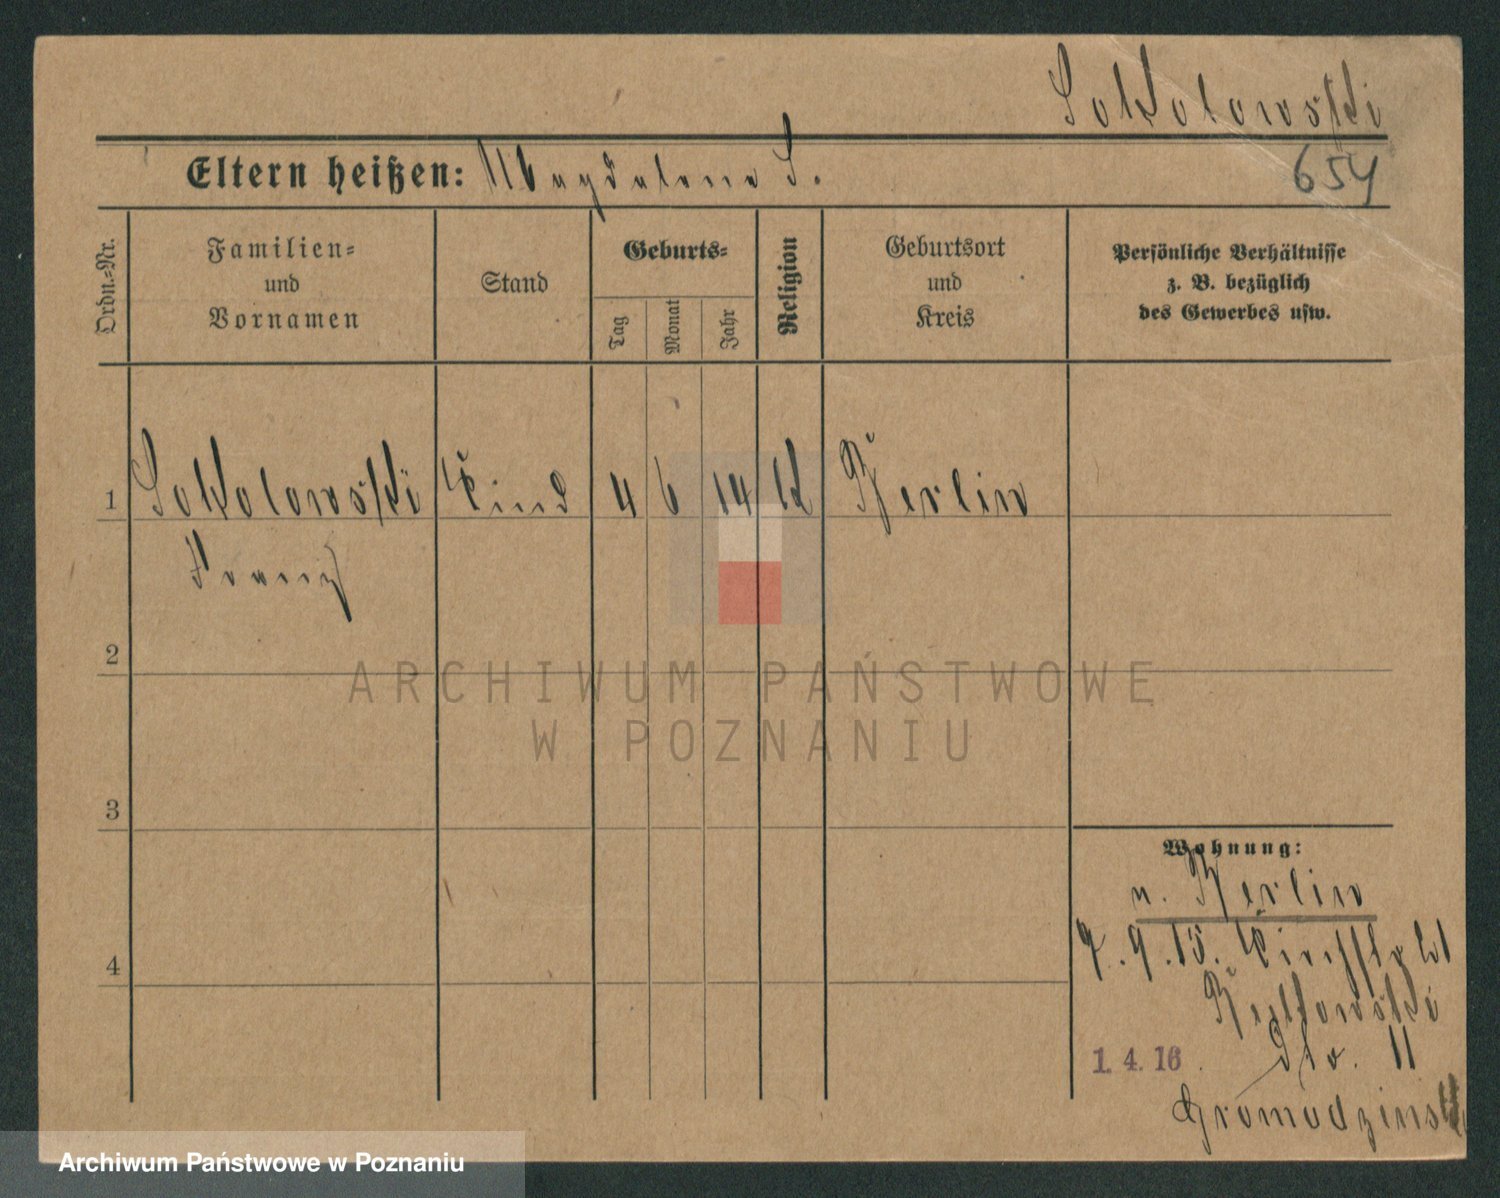 Sokolowski
Eltern heißen: Magdalena S.
654
Ordn.-Nr.
Familien-
und
Vornamen
Stand
Geburts-
Tag
Monat
Jahr
Religion
Geburtsort
und
Kreis
Persönliche Verhältnisse
z. B. bezüglich
des Gewerbes usw.
1 Sokolowski Kind 4 6 14 k Berlin
Franz
2
3
4
Wohnung:
n. Berlin
9.15.
1. 4. 16
dto. 11
ARCHIWUM PAŃSTWOWE
W POZNANIU
Archiwum Państwowe w Poznaniu